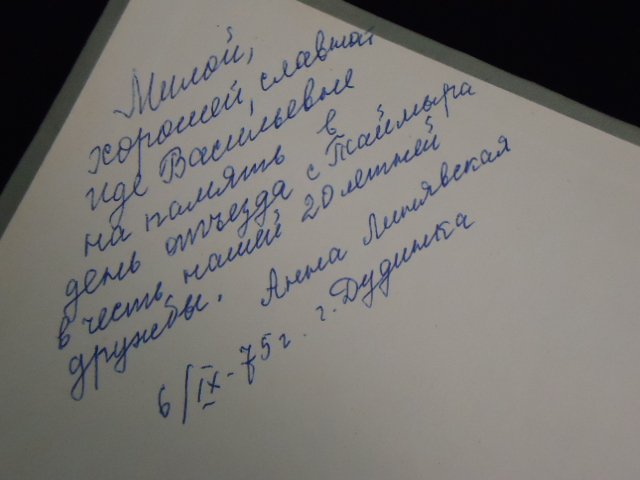 Милой,
хорошей, славной
Иде Васильевне
на память в
день отъезда с Таймыра
в честь нашей 20 летней
дружбы. Анна
6/IX-75г. г. Дудинка